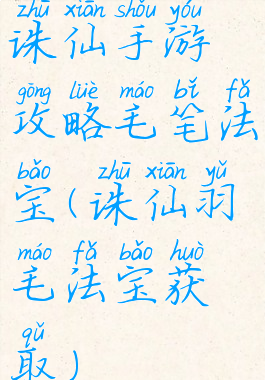 zhū xiān shǒu yóu
诛仙手游
gōng lüè máo bǐ fǎ
攻略毛笔法
bǎo zhū xiān yǔ
宝(诛仙羽
máo fǎ bǎo huò
毛法宝获
qǔ
取)